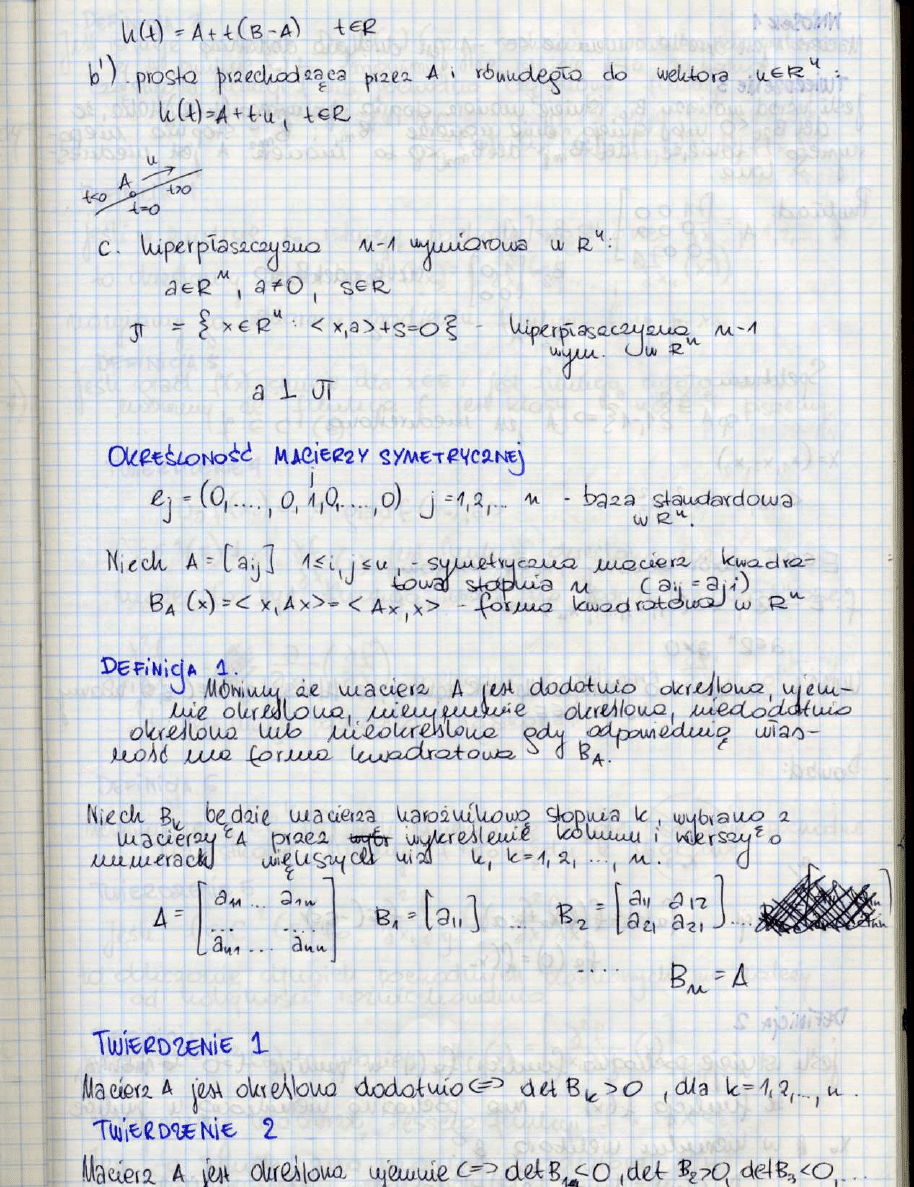 k(t) = A + t(B-A)   t∈R
b') prosta przechodząca przez A i równoległa do wektora u∈Rⁿ:
k(t)=A+t·u, t∈R
u
A
t<0 t>0
t=0
c. hiperpłaszczyzna n-1 wymiarowa w Rⁿ:
a∈Rⁿ, a≠0, s∈R
π = {x∈Rⁿ: <x,a>+s=0} - hiperpłaszczyzna n-1
wym. w Rⁿ
a ⊥ π
OKREŚLONOŚĆ MACIERZY SYMETRYCZNEJ
j
eⱼ=(0,....,0,1,0,...,0) j=1,2,... n - baza standardowa
w Rⁿ.
Niech A=[aᵢⱼ] 1≤i,j≤n, - symetryczna macierz kwadra-
towa stopnia n (aᵢⱼ=aⱼᵢ)
B_A(x)=<x,Ax>=<Ax,x> - forma kwadratowa w Rⁿ
DEFINICJA 1.
Mówimy że macierz A jest dodatnio określona, ujem-
nie określona, nieujemnie określona, niedodatnio
określona lub nieokreślona gdy odpowiednią włas-
ność ma forma kwadratowa B_A.
Niech Bₖ będzie macierzą narożnikową stopnia k, wybraną z
macierzy A przez wykreślenie kolumn i wierszy o
numerach większych niż k, k=1,2,...,n.
A = [a₁₁ ... a₁ₙ   B₁=[a₁₁] ... B₂=[a₁₁ a₁₂
... ....   a₂₁ a₂₁] ...
aₙ₁ ... aₙₙ]
.... Bₙ = A
TWIERDZENIE 1
Macierz A jest określona dodatnio <=> det Bₖ>0, dla k=1,2,..,n.
TWIERDZENIE 2
Macierz A jest określona ujemnie <=> det B₁<0, det B₂>0, det B₃<0,...